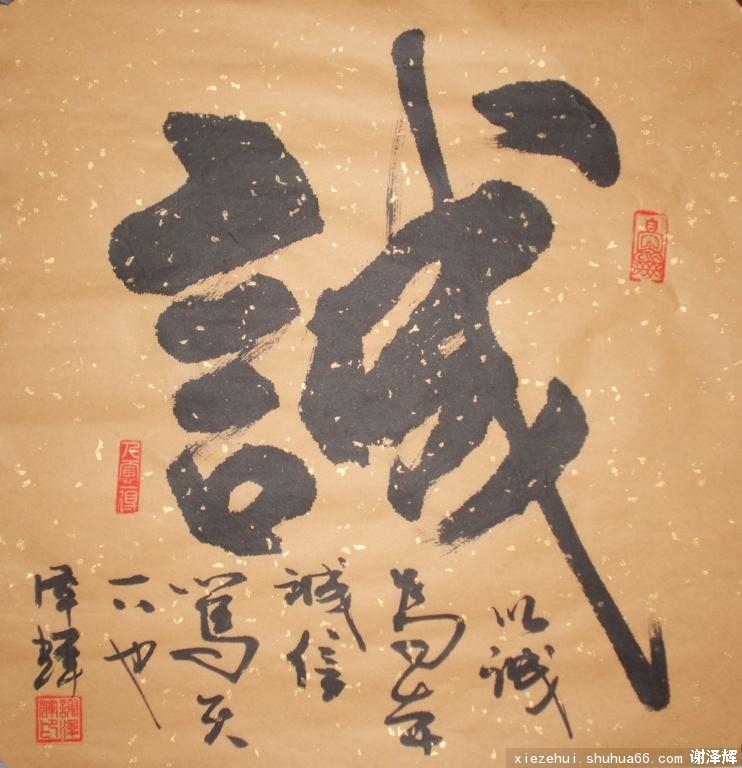 誠
以誠
為本
誠信
篤天
下也
澤輝
謝澤輝印
xiezehui.shuhua66.com 谢泽辉